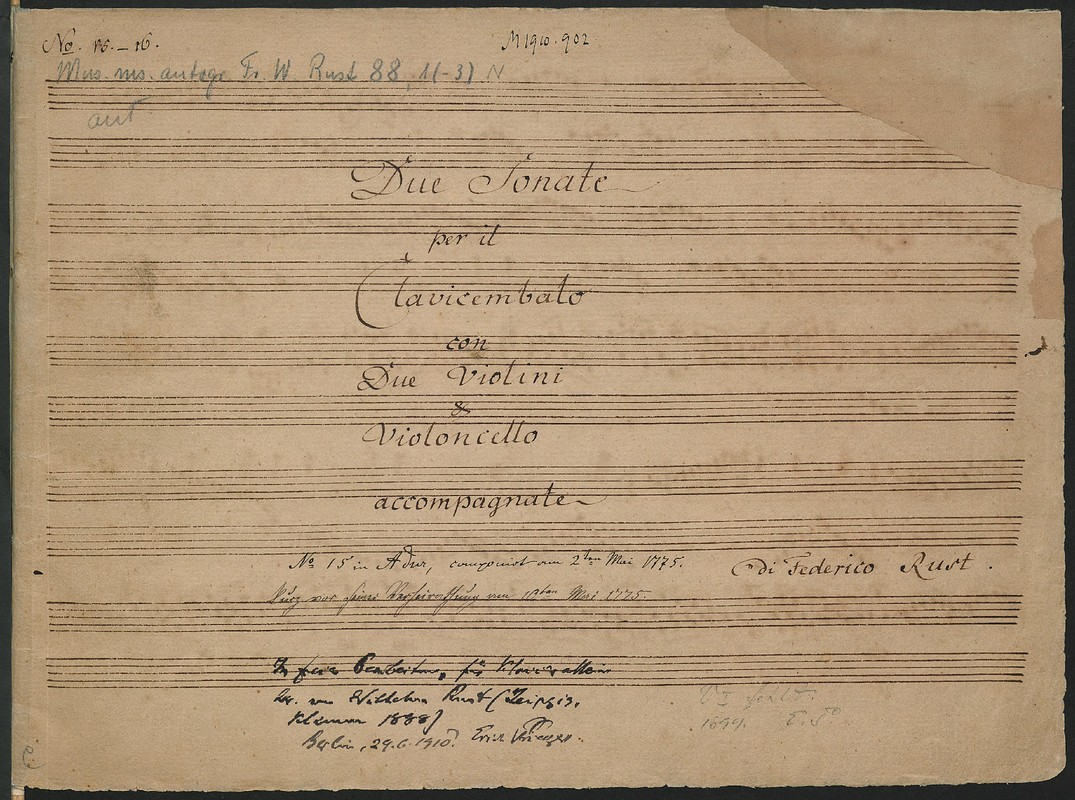 No. 15. - 16.
M 1910.902
Mus. ms. autogr. Fr. W. Rust 88, 1(-3) N
aut
Due Sonate
per il
Clavicembalo
con
Due Violini
&
Violoncello
accompagnate
No 15 in A dur, componirt am 2ten Mai 1775.
di Federico Rust.
Kurz vor seiner Verheirathung am Mai 1775.
In freier Bearbeitung für Klavier allein
von Wilhelm Rust (Leipzig,
Klemm 1888)
Berlin, 29.6.1910. Erich Prieger.
fehlt.